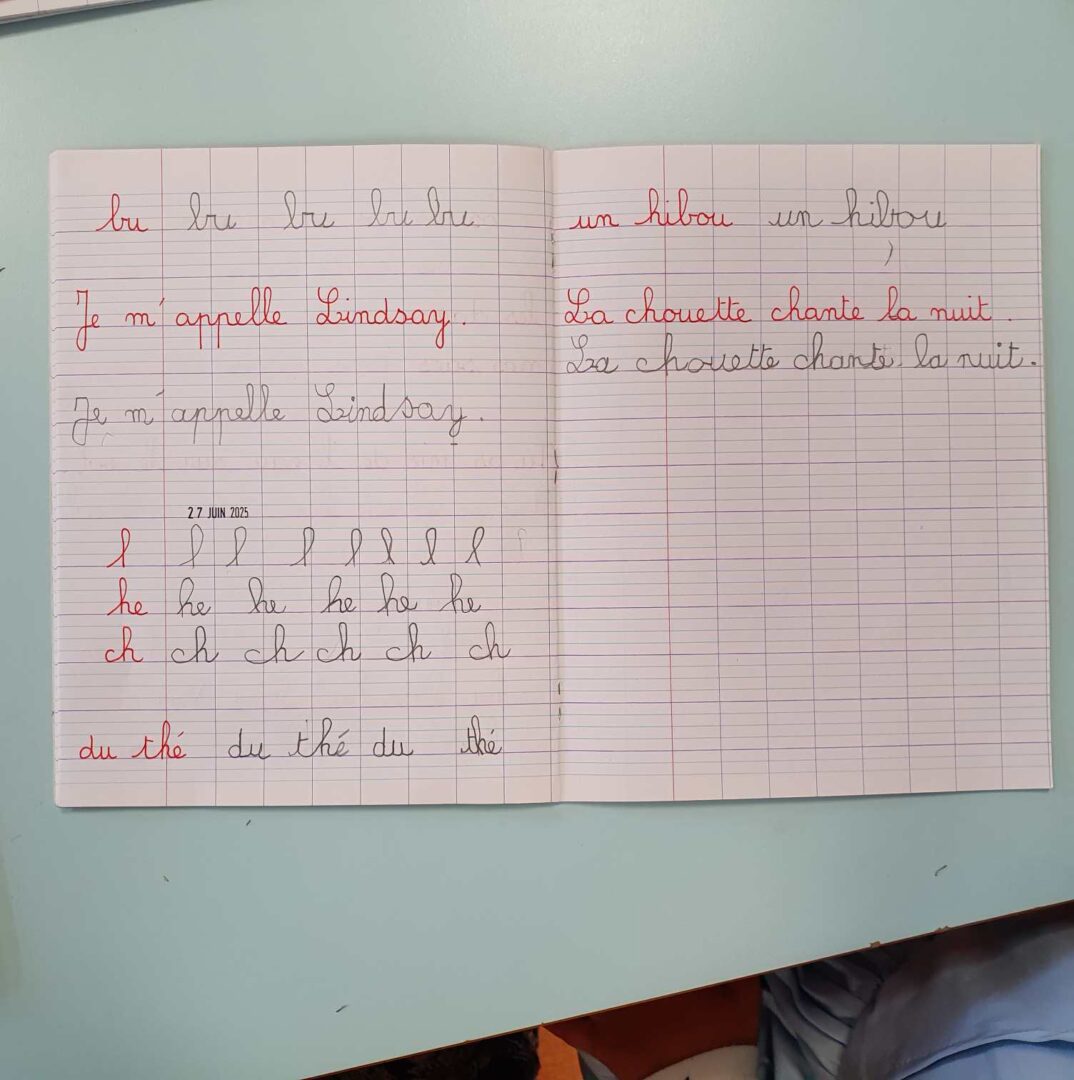 bu bu bu bu bu
Je m'appelle Lindsay.
Je m'appelle Lindsay.
27 JUIN 2025
l l l l l l l l
he he he he he he
ch ch ch ch ch ch
du thé du thé du thé
un hibou un hibou
La chouette chante la nuit.
La chouette chante la nuit.